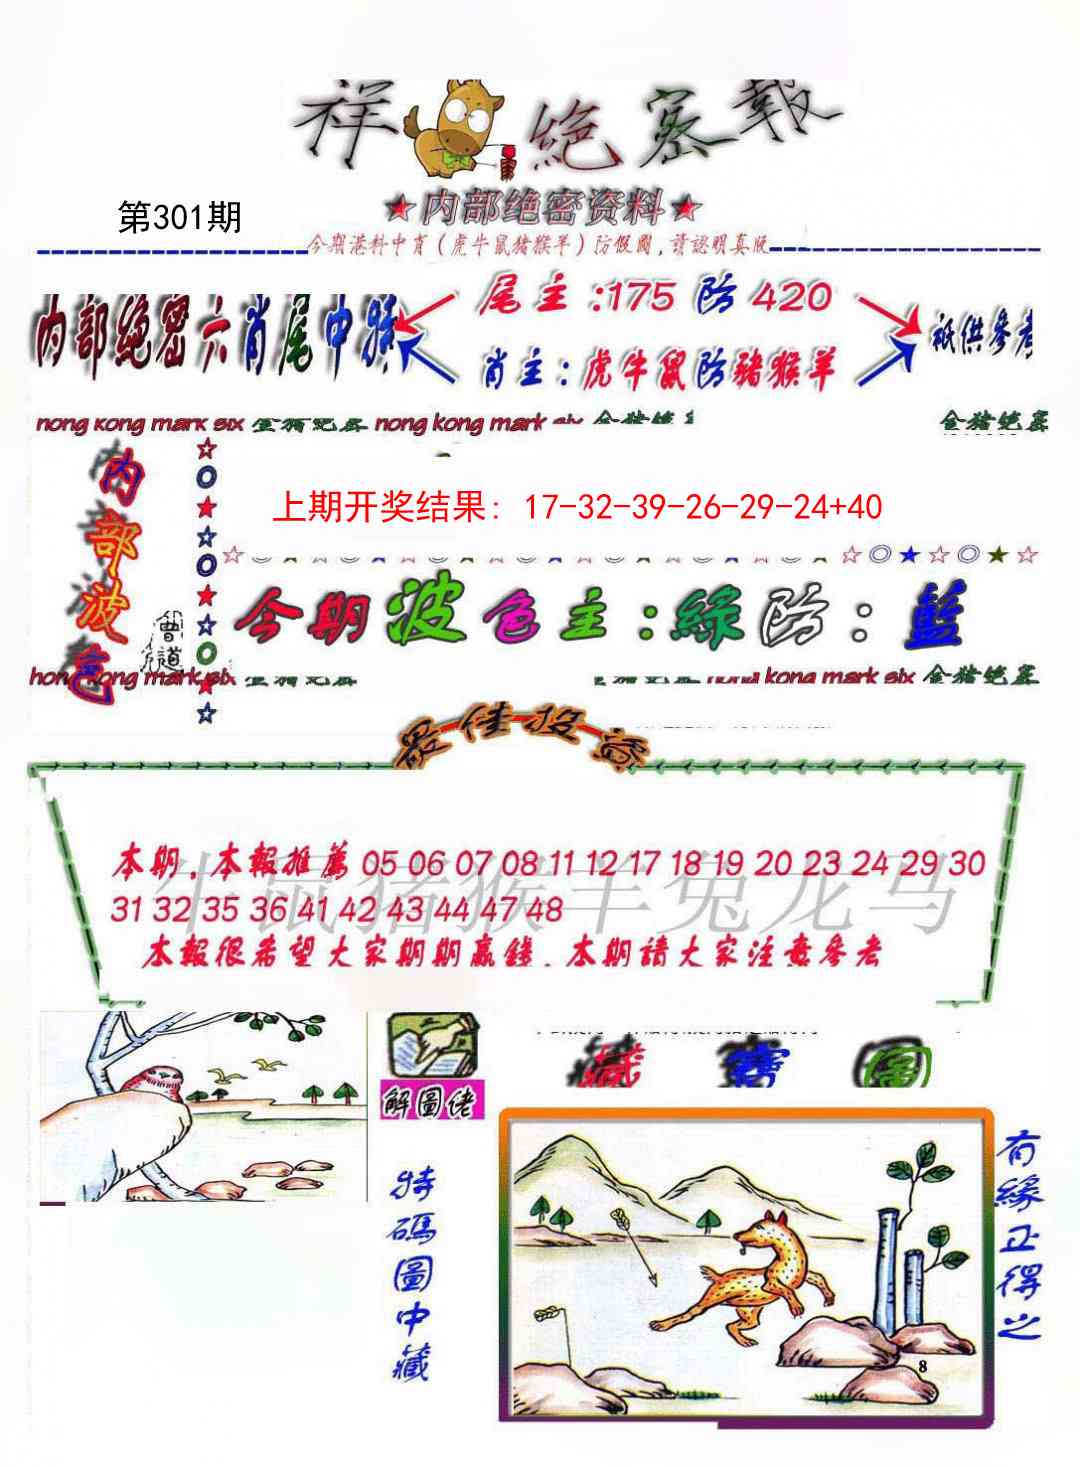 祥 絶密報
★内部绝密资料★
第301期
今期港料中肖（虎牛鼠猪猴羊）防假圖，請認明真版
内部绝密六肖尾中特
尾主:175防420
肖主:虎牛鼠防豬猴羊
祇供參考
hong kong mark six 金猪绝密 hong kong mark six 金猪绝密
金猪绝密
内部波色
曾道
上期开奖结果: 17-32-39-26-29-24+40
今期波色主:綠防:藍
hong kong mark six 金猪绝密
金猪绝密 hong kong mark six 金猪绝密
最佳投資
牛鼠猪猴羊兔龙马
本期,本報推薦 05 06 07 08 11 12 17 18 19 20 23 24 29 30
31 32 35 36 41 42 43 44 47 48
本報很希望大家期期贏錢.本期請大家注意參考
解圖佬
特碼圖中藏
藏寶圖
有緣正得之
8